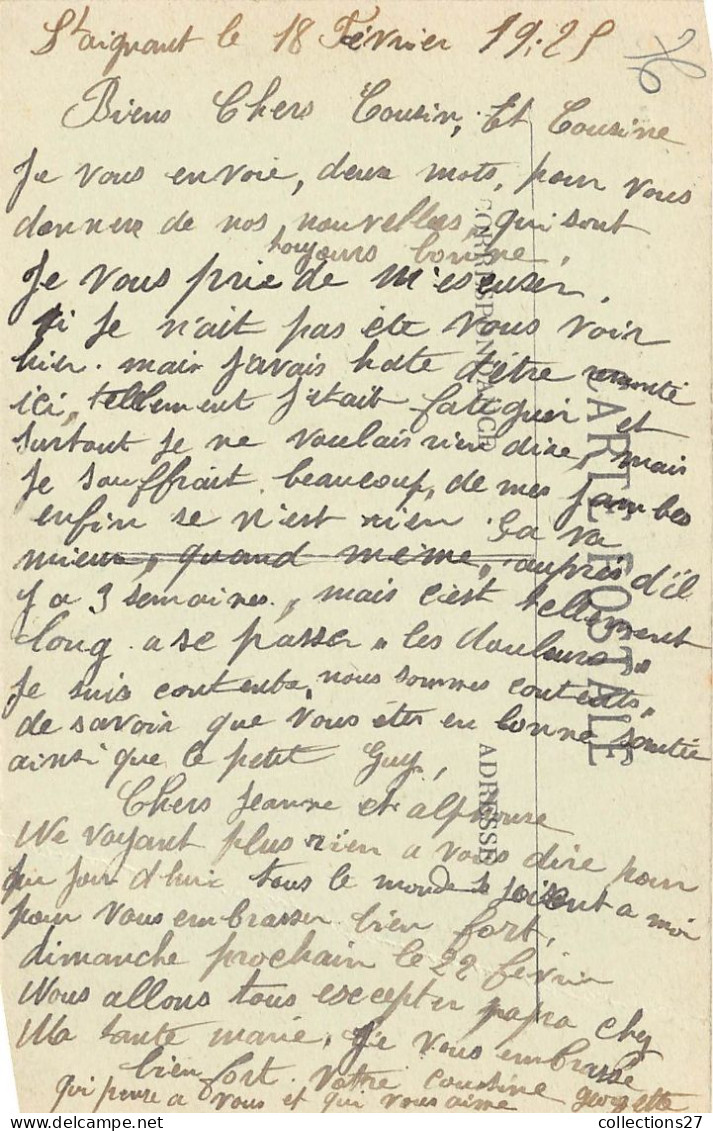 St aignant le 18 Février 19.25
Biens Chers Cousin, Et Cousine
Je vous envoie, deux mots, pour vous
donner de nos nouvelles, qui sont
toujours bonne,
Je vous prie de m'escuser,
si je n'ait pas été vous voir
hier. mais j'avais hate d'être
ici, tellement j'etait fatiguer et
surtout je ne voulais rien dire, mais
je souffrait beaucoup, de mes jambes
enfin se n'est rien. ça va
mieux, quand même, auprès d'il
y a 3 semaines, mais c'est tellement
long a se passer "les douleurs"
Je suis contente, nous sommes contents,
de savoir que vous êtes en bonne santée
ainsi que le petit Guy,
Chers Jeanne et alphonse
Ne voyant plus rien a vous dire pour
jour d'hui tous le monde se joisent a moi
pour vous embrasser bien fort,
dimanche prochain le 22 février
Nous allons tous excepter papa chez
Ma tante marie, Je vous embrasse
bien fort. votre cousine georgette
qui pense a vous et qui vous aime
CARTE POSTALE
CORRESPONDANCE
ADRESSE
collections27